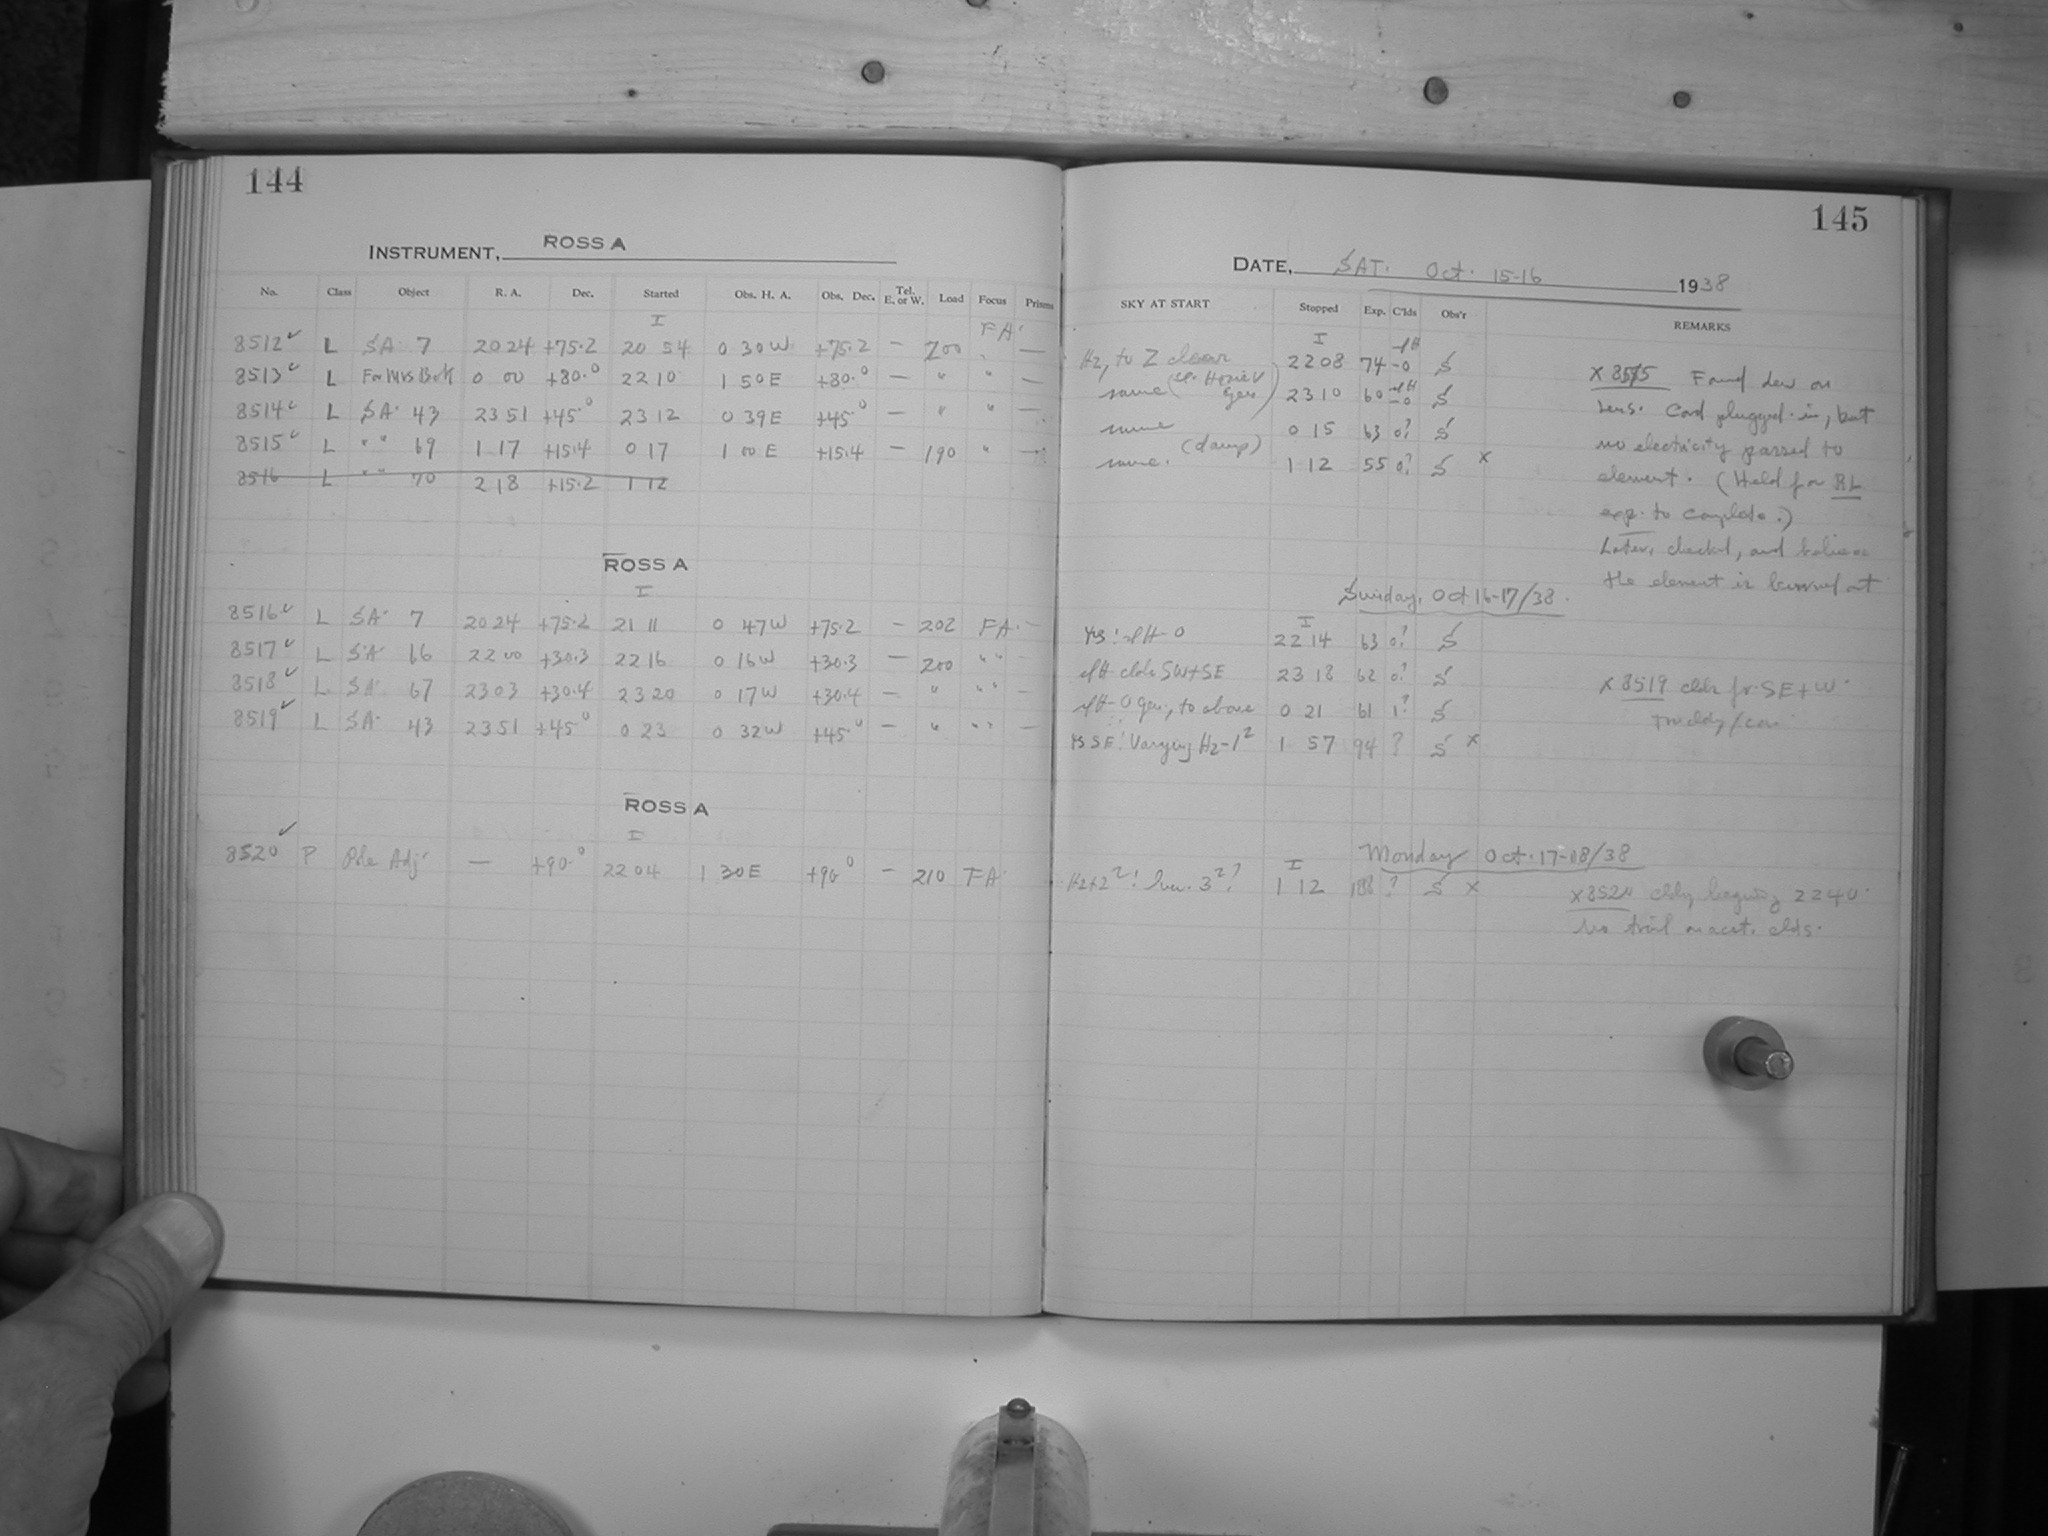 144
INSTRUMENT, ROSS A
No. Class Object R. A. Dec. Started Obs. H. A. Obs. Dec. Tel. E. or W. Load Focus Prisms
I FA.
8512 ✓ L SA 7 20 24 +75.2 20 54 0 30 W +75.2 — 200 " —
8513 ✓ L For Mrs Bok 0 00 +80.0 22 10 1 50 E +80.0 — " " —
8514 ✓ L SA. 43 23 51 +45.0 23 12 0 39 E +45.0 — " " —
8515 ✓ L " " 69 1 17 +15.4 0 17 1 00 E +15.4 — 190 " —
8516 L " " 70 2 18 +15.2 1 12
ROSS A
I
8516 ✓ L SA. 7 20 24 +75.2 21 11 0 47 W +75.2 — 202 FA. —
8517 ✓ L SA 66 22 00 +30.3 22 16 0 16 W +30.3 — 200 " " —
8518 ✓ L SA 67 23 03 +30.4 23 20 0 17 W +30.4 — " " " —
8519 ✓ L SA. 43 23 51 +45.0 0 23 0 32 W +45.0 — " " " —
ROSS A
I
8520 ✓ P Pole Adj. — +90.0 22 04 1 30 E +90.0 — 210 FA
145
DATE, SAT. Oct. 15-16 1938
SKY AT START Stopped Exp. C'lds Obs'r REMARKS
I
Hz, to Z clear 22 08 74 -0 S
same 23 10 60 -0 S
same 0 15 63 0? S
same. (damp) 1 12 55 0? S x
x 8515 Found dew on
lens. Cord plugged in, but
no electricity passed to
element. (Held for RL
exp. to complete.)
Later, checked, and believe
the element is burned out
Sunday, Oct 16-17/38.
I
22 14 63 0? S
clds SW+SE 23 18 62 0? S
to above 0 21 61 1? S
SE! Varying Hz-1² 1 57 94 ? S x
x 8519 clds fr. SE + W.
Monday Oct. 17-18/38
I
Hz+2²! 3²? 1 12 188 ? S x
x 8520 cldy beginning 2240.
No trail on acct. clds.